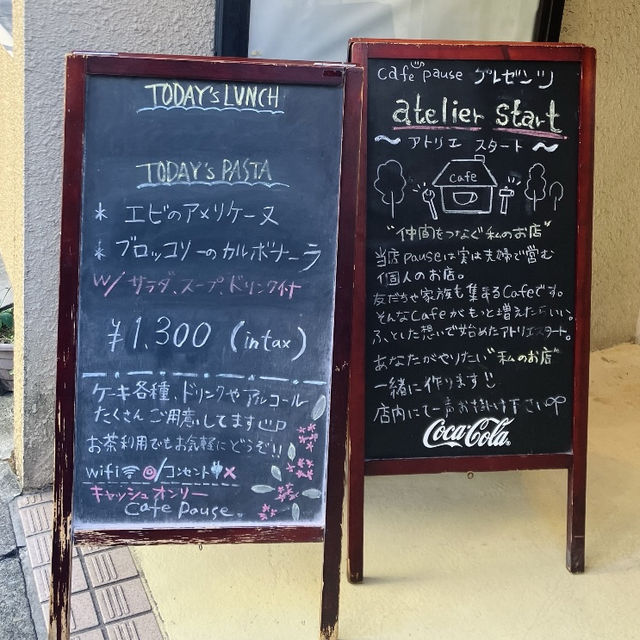 TODAY's LUNCH
TODAY's PASTA
* エビのアメリケーヌ
* ブロッコリーのカルボナーラ
w/ サラダ、スープ、ドリンク付
¥1,300 (in tax)
ケーキ各種、ドリンクやアルコール
たくさんご用意してます
お茶利用でもお気軽にどうぞ!!
wifi ◎/コンセント ×
キャッシュオンリー
Cafe Pause.
cafe pause プレゼンツ
atelier start
〜アトリエ スタート〜
cafe
"仲間をつなぐ私のお店"
当店pauseは実は夫婦で営む
個人のお店。
友だちや家族も集まるCafeです。
そんなCafeがもっと増えたらいい。
ふとした想いで始めたアトリエスタート。
あなたがやりたい"私のお店"
一緒に作ります!!
店内にて一声お掛け下さい
Coca-Cola